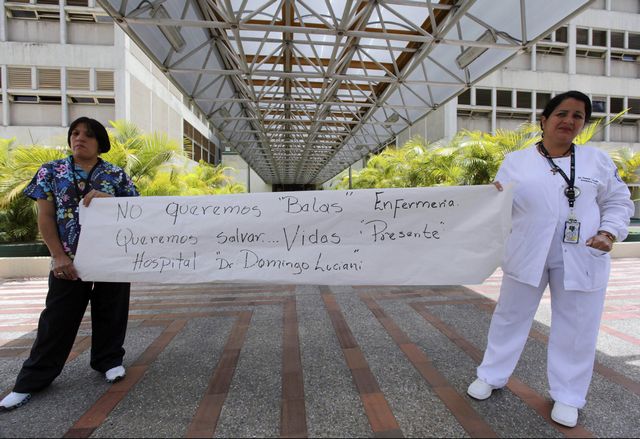 No queremos "Balas" Enfermería.
Queremos salvar... Vidas "Presente"
Hospital "Dr Domingo Luciani